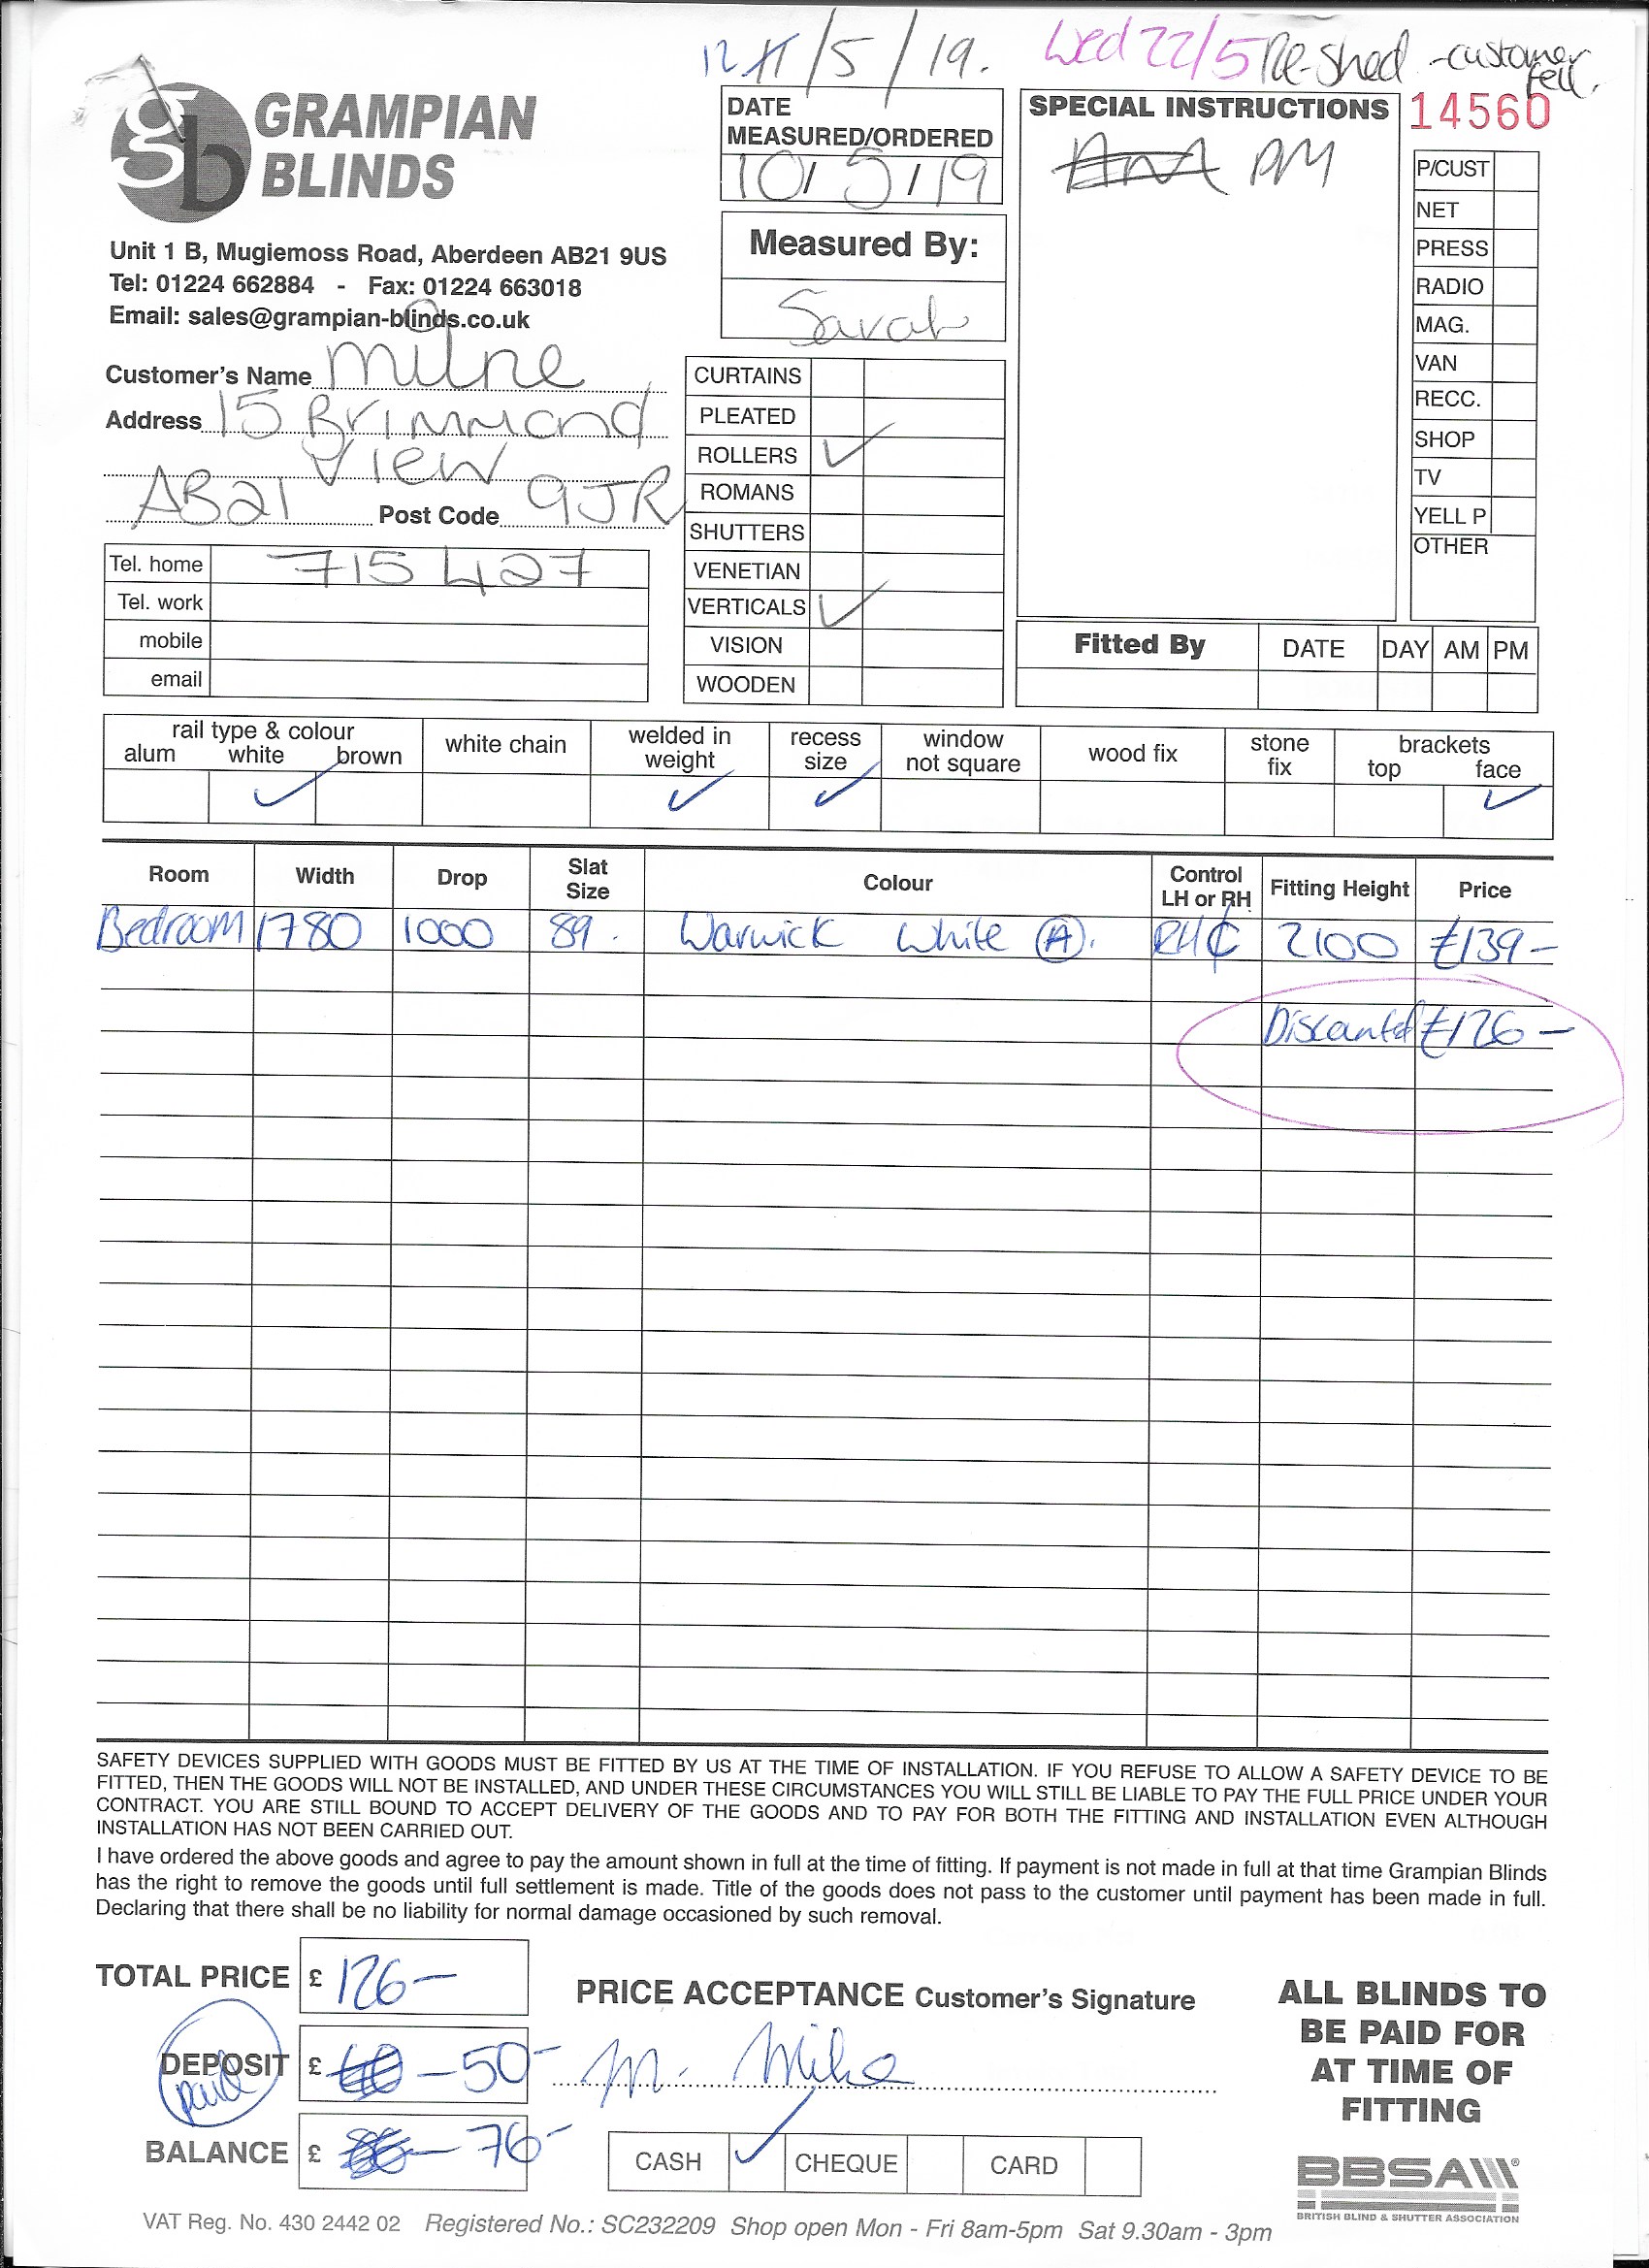 /5/19. Wed 22/5 Re-shed - customer fell.
GRAMPIAN
BLINDS
Unit 1 B, Mugiemoss Road, Aberdeen AB21 9US
Tel: 01224 662884 - Fax: 01224 663018
Email: sales@grampian-blinds.co.uk
Customer's Name Milne
Address 15 Brimmond
View
AB21 Post Code 9JR
Tel. home 715427
Tel. work
mobile
email
DATE
MEASURED/ORDERED
10/5/19
Measured By:
Sarah
CURTAINS
PLEATED
ROLLERS ✓
ROMANS
SHUTTERS
VENETIAN
VERTICALS ✓
VISION
WOODEN
SPECIAL INSTRUCTIONS
PM
14560
P/CUST
NET
PRESS
RADIO
MAG.
VAN
RECC.
SHOP
TV
YELL P
OTHER
Fitted By DATE DAY AM PM
rail type & colour
alum white brown
white chain
welded in
weight
recess
size
window
not square
wood fix
stone
fix
brackets
top face
✓ ✓ ✓ ✓
Room Width Drop Slat Size Colour Control LH or RH Fitting Height Price
Bedroom 1780 1000 89. Warwick White (A). 2100 £139-
Discounted £126-
SAFETY DEVICES SUPPLIED WITH GOODS MUST BE FITTED BY US AT THE TIME OF INSTALLATION. IF YOU REFUSE TO ALLOW A SAFETY DEVICE TO BE
FITTED, THEN THE GOODS WILL NOT BE INSTALLED, AND UNDER THESE CIRCUMSTANCES YOU WILL STILL BE LIABLE TO PAY THE FULL PRICE UNDER YOUR
CONTRACT. YOU ARE STILL BOUND TO ACCEPT DELIVERY OF THE GOODS AND TO PAY FOR BOTH THE FITTING AND INSTALLATION EVEN ALTHOUGH
INSTALLATION HAS NOT BEEN CARRIED OUT.
I have ordered the above goods and agree to pay the amount shown in full at the time of fitting. If payment is not made in full at that time Grampian Blinds
has the right to remove the goods until full settlement is made. Title of the goods does not pass to the customer until payment has been made in full.
Declaring that there shall be no liability for normal damage occasioned by such removal.
TOTAL PRICE £ 126-
DEPOSIT £ - 50-
paid
BALANCE £ - 76-
PRICE ACCEPTANCE Customer's Signature
M. Milne
CASH ✓ CHEQUE CARD
ALL BLINDS TO
BE PAID FOR
AT TIME OF
FITTING
BBSA
BRITISH BLIND & SHUTTER ASSOCIATION
VAT Reg. No. 430 2442 02 Registered No.: SC232209 Shop open Mon - Fri 8am-5pm Sat 9.30am - 3pm